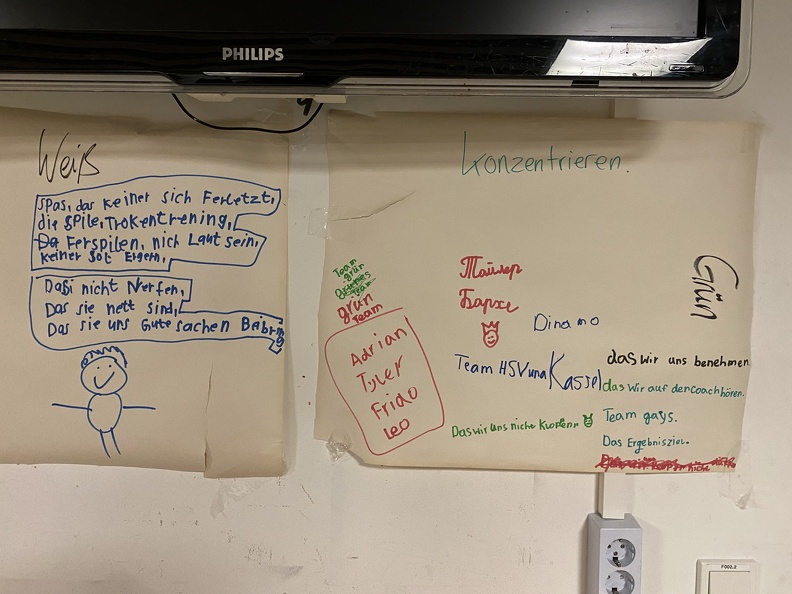 PHILIPS
Weiß
Spas, das keiner sich Ferletzt,
die Spile, Trokentrening,
Ferspilen, nich Laut sein,
keiner Sol Ergern,
Dasi nicht Nerfen,
Das sie nett sind,
Das sie uns Gute sachen Beibring
konzentrieren.
Grün
Team
grün
team
grün
Team
Adrian
Tyler
Frido
Leo
Тайлер
Dinamo
Team HSV und Kassel
Das wir uns nicht
das wir uns benehmen
das wir auf den coach hören.
Team gays.
Das Ergebnisziel.
F002.2